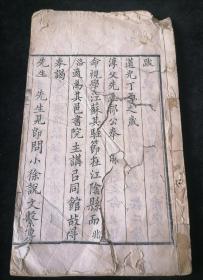 跋
道光丁酉歲
淳父先生祁公奉
命視學江蘇其駐節在江陰縣而兆
洛適為其邑書院主講以同館故得
奉謁
先生　先生見即問小徐說文繫傳